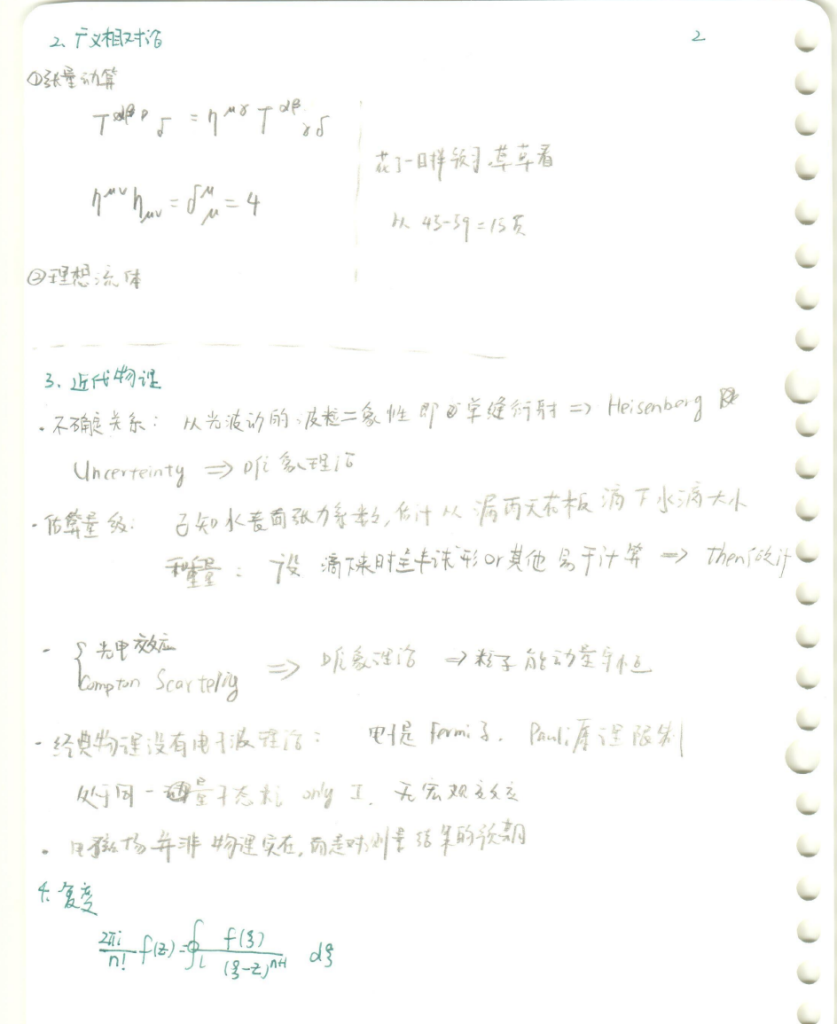 2、广义相对论
2
①张量动算
T^{αβμ}_δ = η^{μγ} T^{αβ}_{γδ}
花了一日样 草草看
η^{μν} η_{μν} = δ^μ_μ = 4
从 45-59 = 15页
②理想流体
3、近代物理
· 不确定关系： 从光波动的波粒二象性 即 单缝衍射 ⇒ Heisenberg
Uncerteinty ⇒ 唯象理论
· 估算量级： 已知水表面张力系数, 估计从漏雨天花板滴下水滴大小
： 设 滴下来时 球形 or 其他易于计算 ⇒ then估计
- { 光电效应
Compton Scarterlig ⇒ 唯象理论 ⇒ 粒子能动量守恒
- 经典物理没有电子波理论： 电子是 Fermi子. Pauli原理限制
处于同一 量子态粒 only 1. 无宏观效应
· 电磁场并非物理实在, 而是对测量结果的预期
4. 复变
\frac{2πi}{n!} f(z) = ∮_L \frac{f(ξ)}{(ξ-z)^{n+1}} dξ